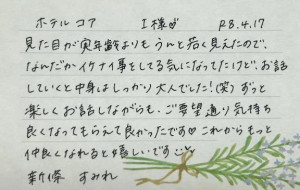 ホテル コア I様♡ R8.4.17
見た目が実年齢よりもうんと若く見えたので、
なんだかイケナイ事をしてる気になってたけど、お話
していくと中身はしっかり大人でした!(笑) ずっと
楽しくお話しながらも、ご要望通り気持ち
良くなってもらえて良かったです♡ これからもっと
仲良くなれると嬉しいです
新條 すみれ